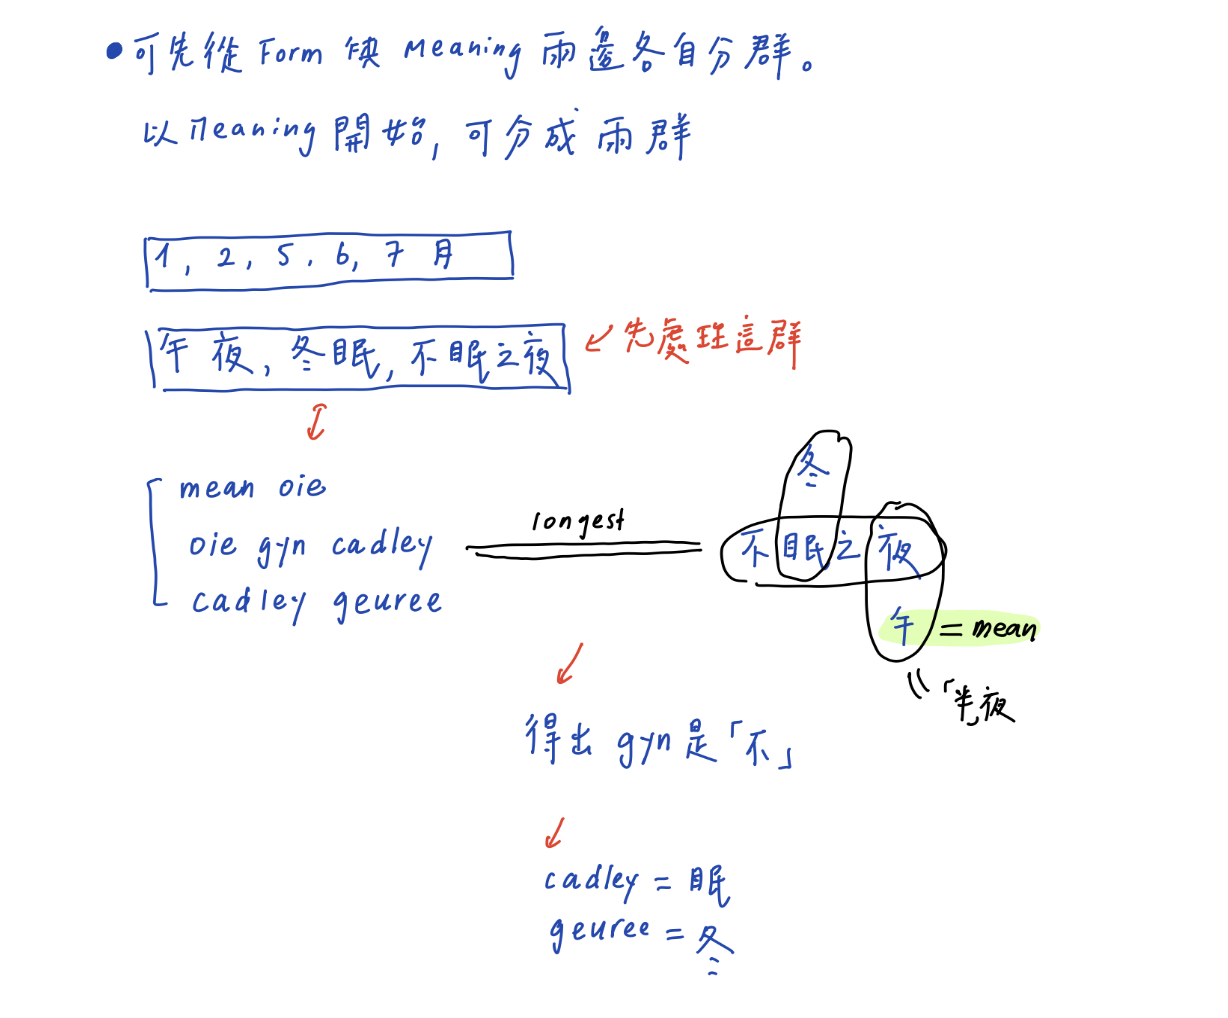 •可先從 Form 快 Meaning 兩邊各自分群。
以 Meaning 開始, 可分成 兩群
1, 2, 5, 6, 7 月
午夜, 冬眠, 不眠之夜
先處理這群
mean oie
oie gyn cadley
cadley geuree
longest
冬
不眠之夜
午 = mean
「半夜
得出 gyn 是「不」
cadley = 眠
geuree = 冬